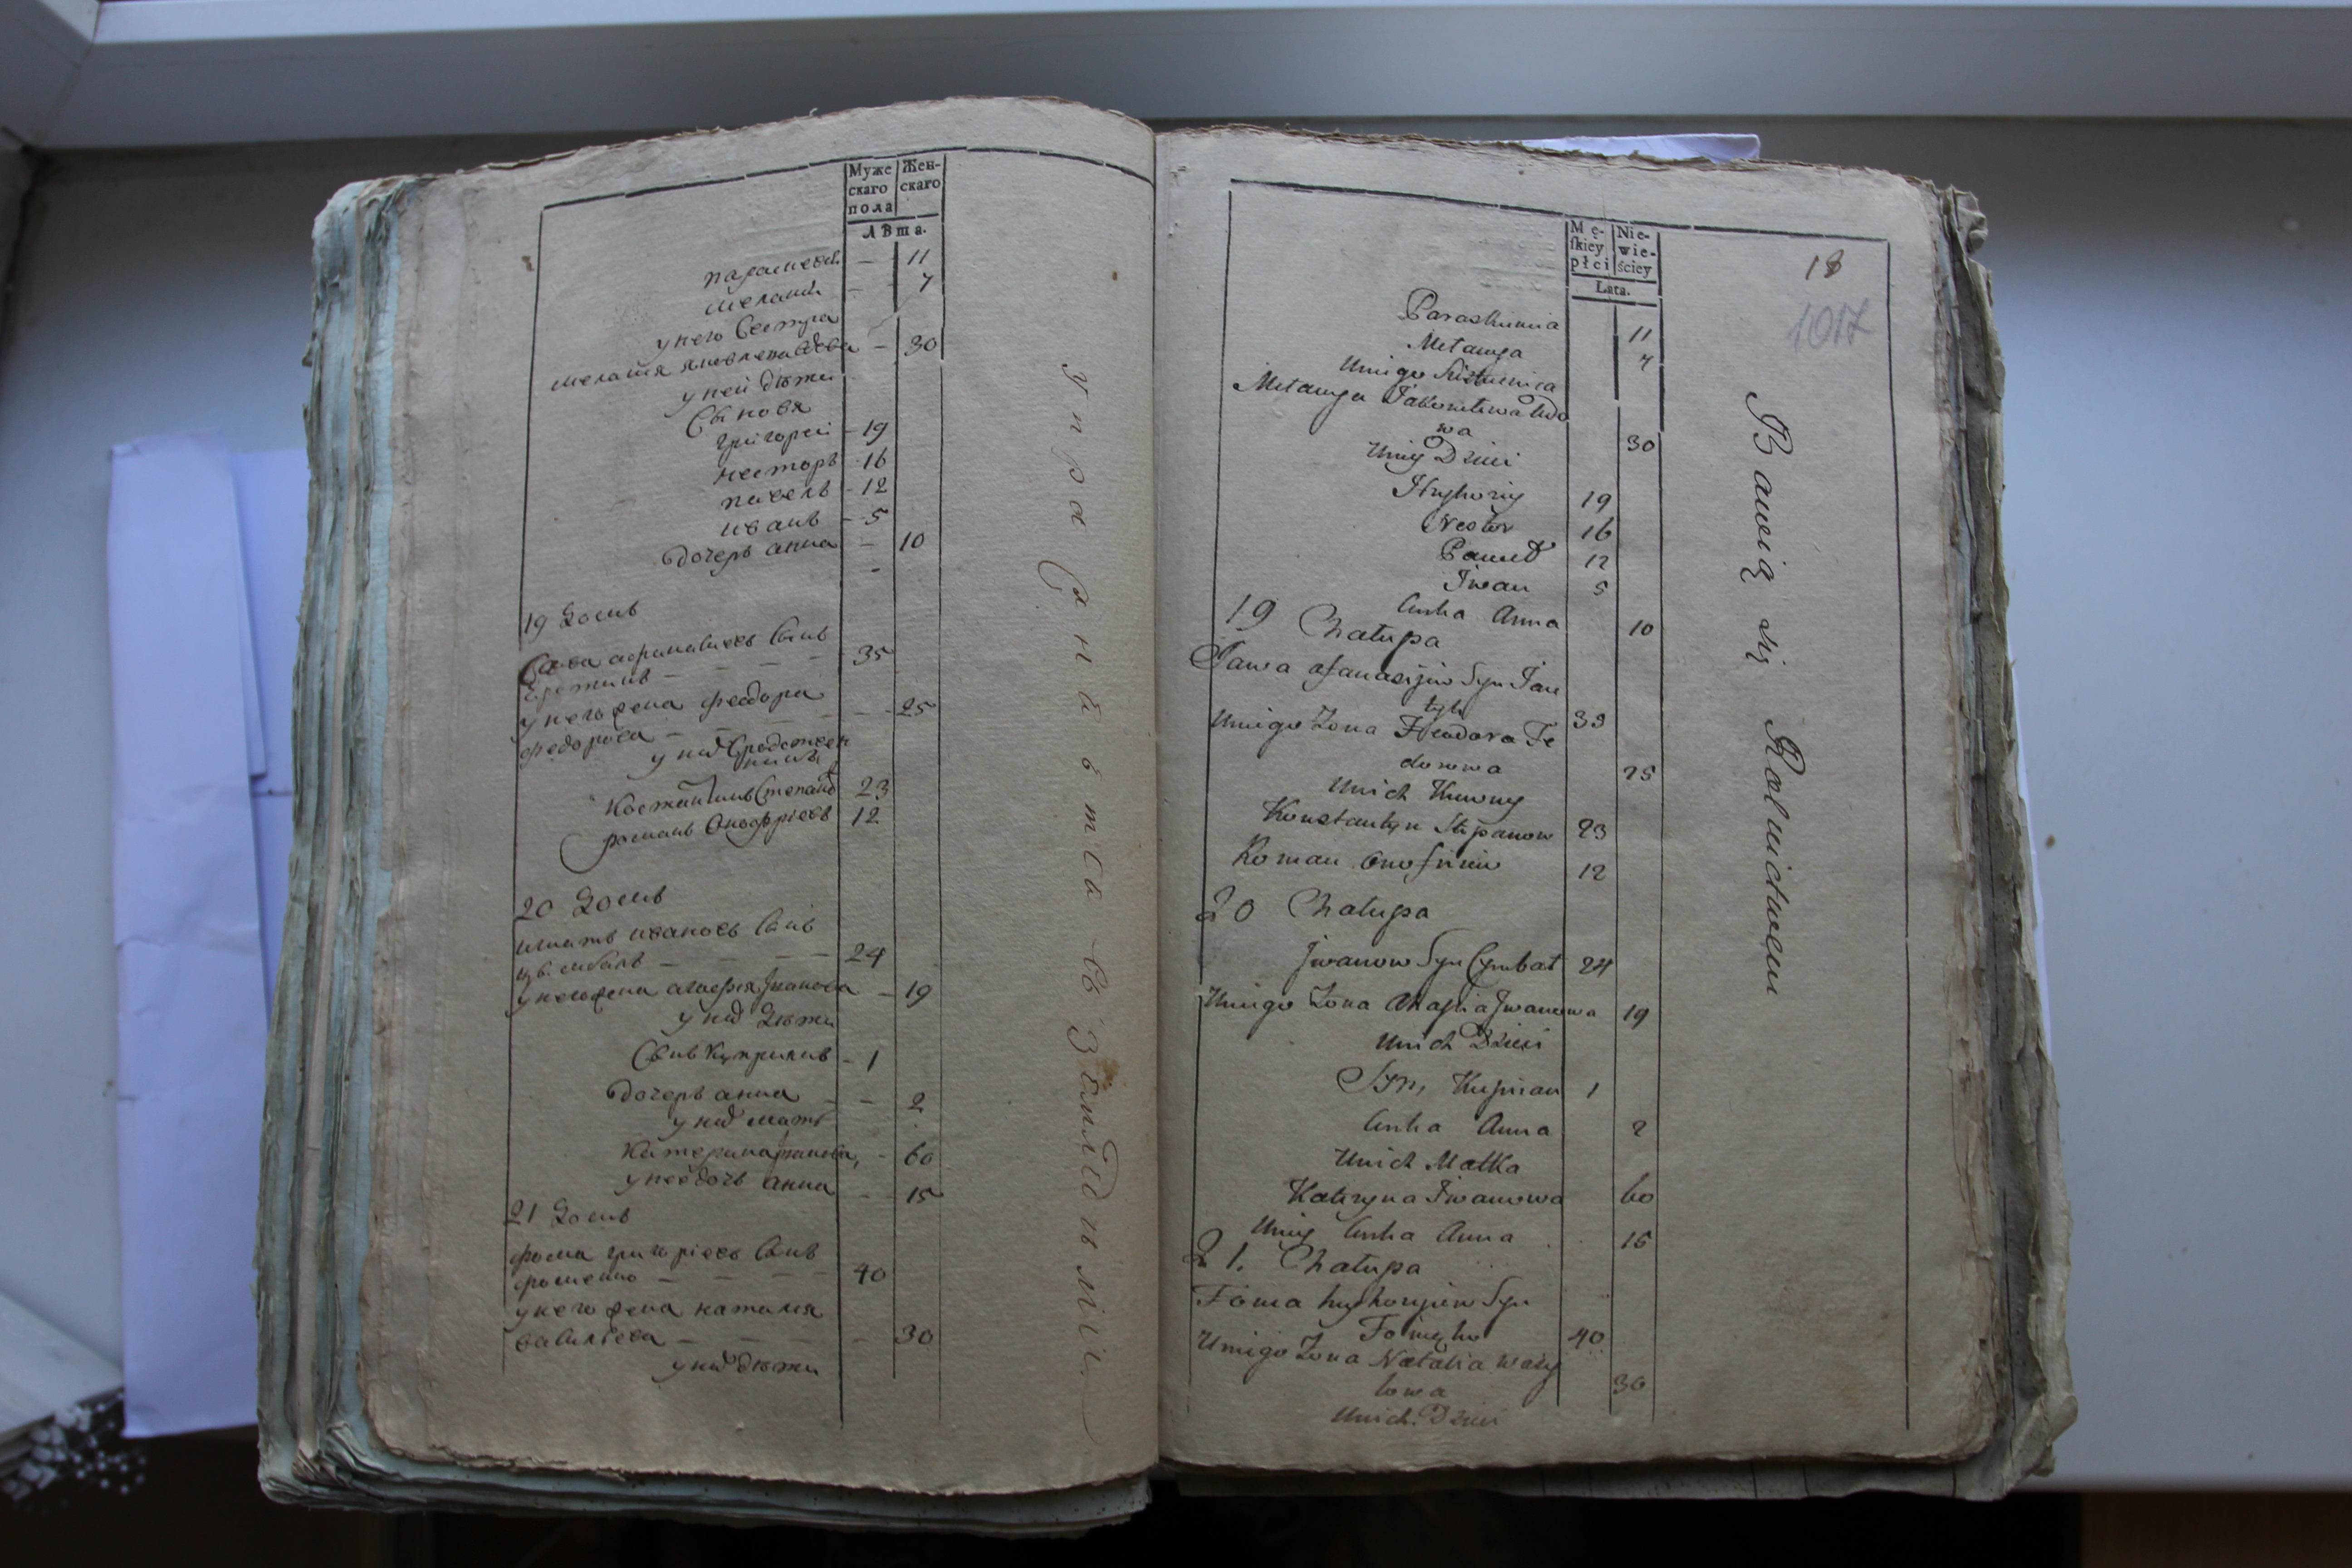 Муже
скаго
пола
Жен-
скаго
лѣта.
параскева — 11
меланія — 7
у него Сестра
меланія яковлева вдова — 30
у ней дѣти
Сыновя
григорей — 19
несторъ 16
павелъ — 12
иванъ — 5
дочеръ анна — 10
19 Домъ
Сава афанасиевъ Сынъ
— — — 35
у него жена феодора
федорова — — — 25
у них
Костантинъ Степановъ 23
романъ Оноффріевъ 12
20 Домъ
игнатъ ивановъ Сынъ
цѣмбалъ — — — 24
у него жена агафия Іванова — 19
у них Дѣти
Сынъ Куприянъ — 1
дочеръ анна — — 2
у них мать
Катерина Іванова, — 60
у нее дочь анна — 15
21 Домъ
фома григоріевъ Сынъ
фоменко — — — 40
у него жена наталия
василиева — — — 30
у них дѣти
упражнаются въ Земледѣліи.
Mę-
ſkiey
płci
Nie-
wie-
ściey
Lata.
18
1017
Paraskiewia 11
Mełanya 7
Uniego Siostrienica
Mełanya Jakowlewa Wdo
wa 30
Uniey Dzieci
Hryhoriy 19
Nestor 16
Paweł 12
Iwan 5
Curka Anna 10
19 Chałupa
Sawa Afanasijew Syn Jare
tyh 33
Uniego Żona Feodora Fe
dorowa 25
Unich Krewny
Konstantyn Stepanow 23
Roman Onofriiew 12
20 Chałupa
Jwanow Syn Cymbał 24
Uniego Żona Ahafia Jwanowa 19
Unich Dzieci
Syn, Kuprian 1
Curka Anna 2
Unich Matka
Kateryna Iwanowa 60
Uniey Curka Anna 15
21. Chałupa
Foma hryhorijew Syn
Fomenko 40
Uniego Żona Natalia Wasy
lowa 30
Unich Dzieci
Bawią się Rolnictwem